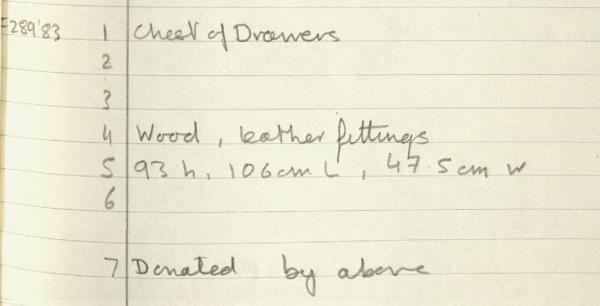 =289'83 1 Chest of Drawers
2
3
4 Wood, leather fittings
5 93 h, 106cm L, 47.5cm w
6
7 Donated by above